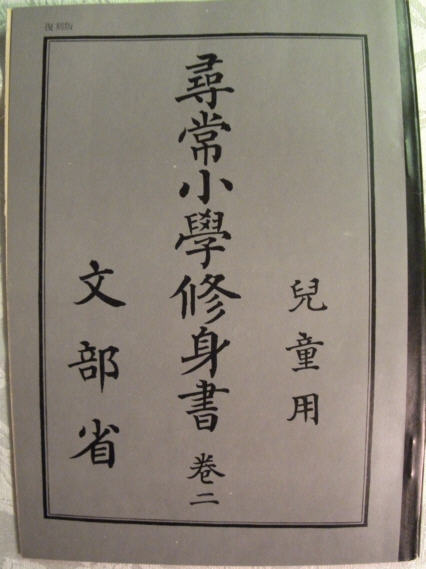 復刻版
兒童用
尋常小學修身書 卷二
文部省